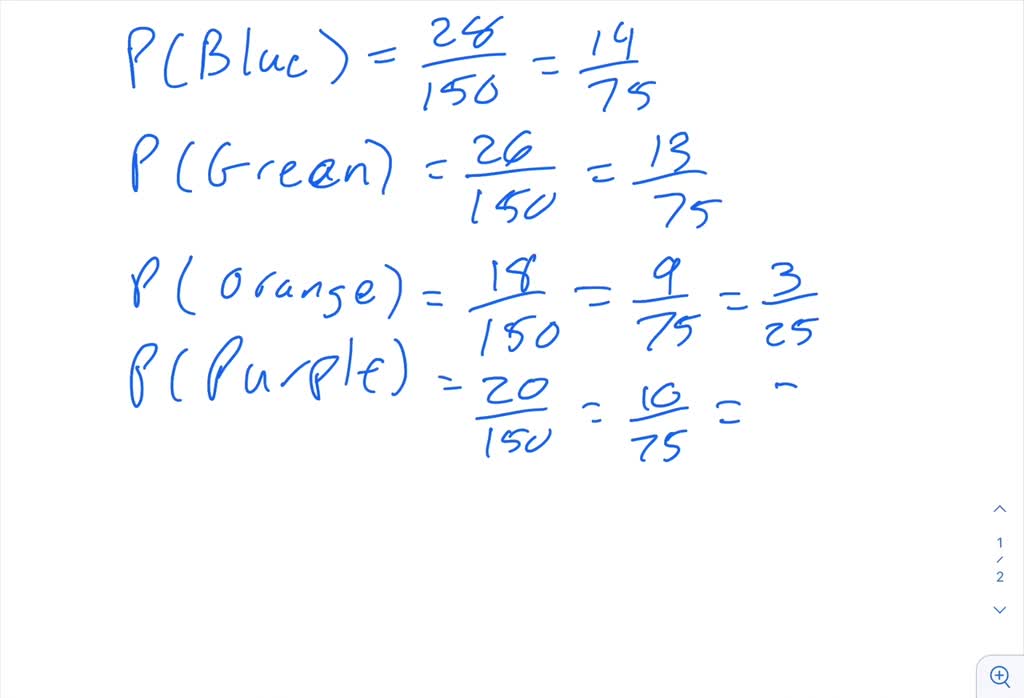 P(Blue) = 28/150 = 14/75
P(Green) = 26/150 = 13/75
P(Orange) = 18/150 = 9/75 = 3/25
P(Purple) = 20/150 = 10/75 =
1
/
2